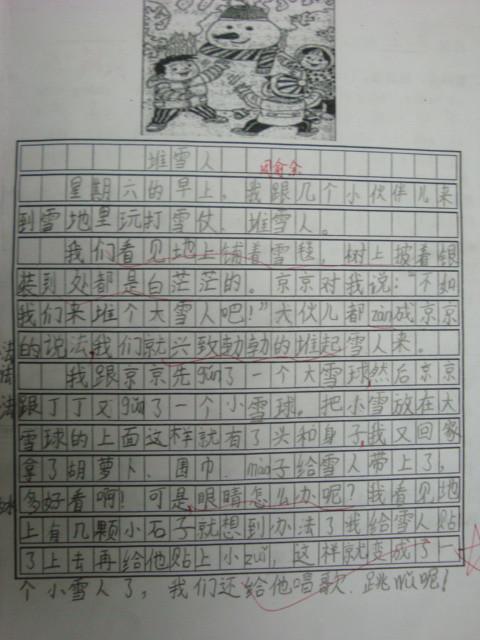 堆雪人
星期六的早上，我跟几个小伙伴儿来
到雪地里玩打雪仗、堆雪人。
我们看见地上铺着雪毯，树上披着银
装到处都是白茫茫的。京京对我说："不如
我们来堆个大雪人吧！"大伙儿都zàn成京京
的说法，我们就兴致勃勃的堆起雪人来。
法
法
法
我跟京京先gǔn了一个大雪球，然后京京
跟丁丁又gǔn了一个小雪球。把小雪放在大
雪球的上面这样就有了头和身子，我又回家
拿了胡萝卜、围巾、mào子给雪人带上了，
多好看啊！可是，眼睛怎么办呢？我看见地
上有几颗小石子就想到办法了我给雪人贴
了上去再给他贴上小zuǐ，这样就变成了一
个小雪人了，我们还给他唱歌、跳wǔ呢！